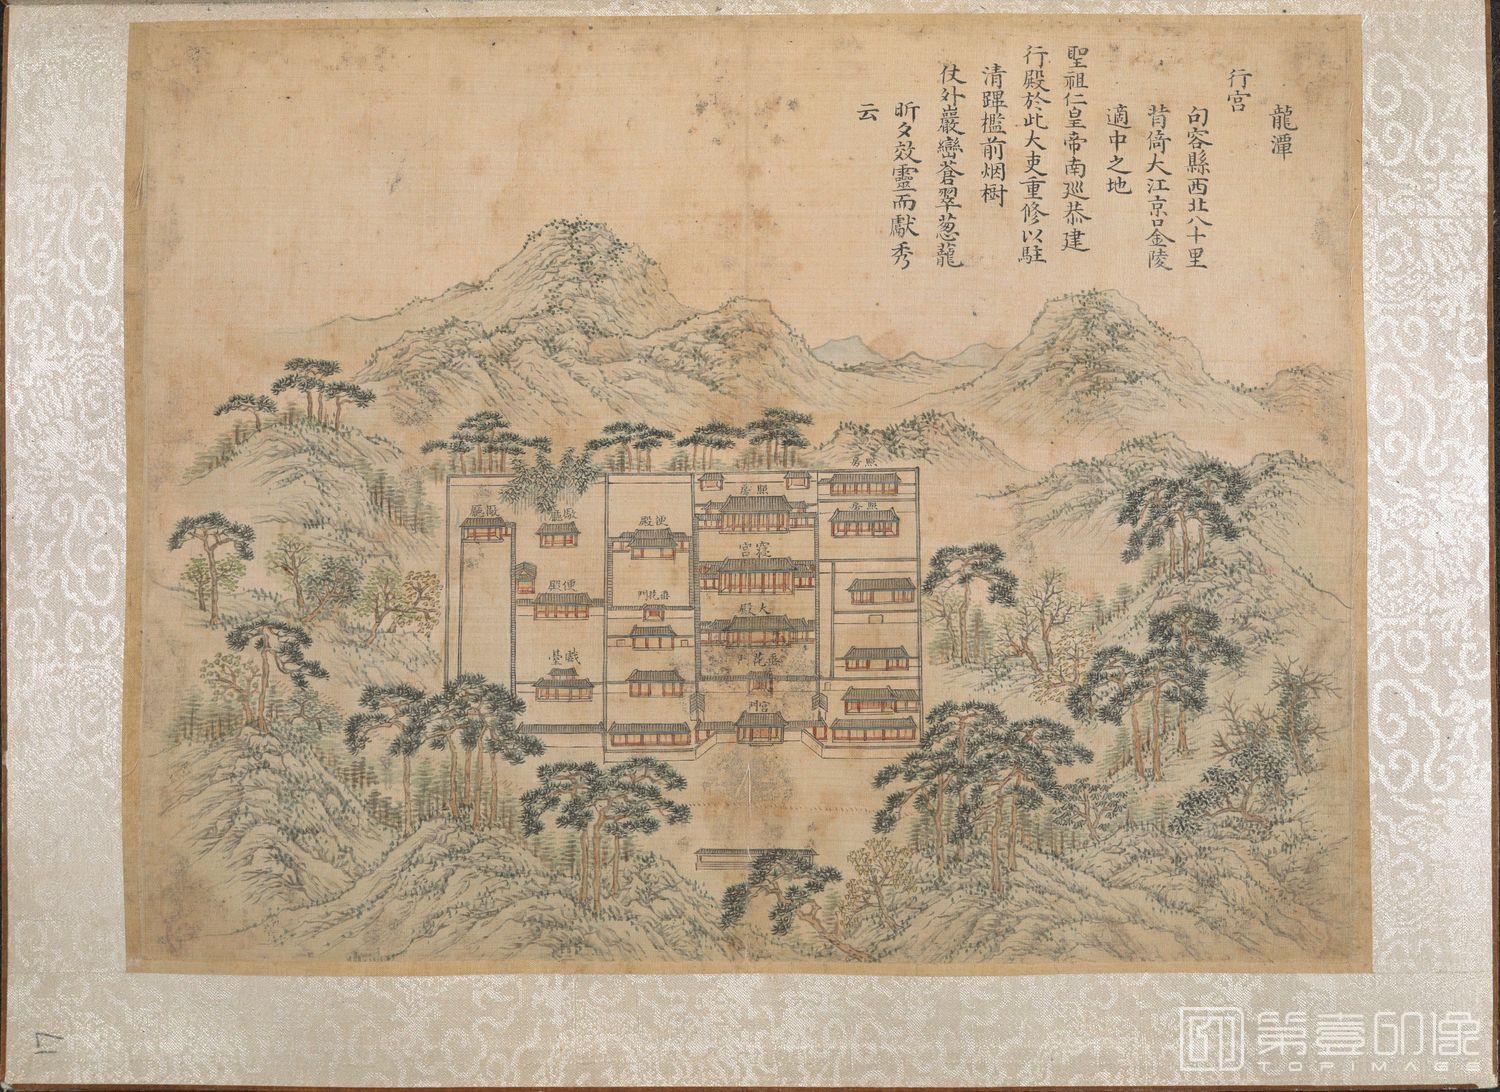 龍潭
行宮
句容縣西北八十里
背倚大江京口金陵
適中之地
聖祖仁皇帝南巡恭建
行殿於此大吏重修以駐
清蹕檻前烟樹
仗外巖巒蒼翠葱蘢
昕夕效靈而獻秀
云
照房
照房
照房
寢宮
大殿
垂花門
宮門
便殿
垂花門
敞廳
便殿
戲臺
敞廳
17
第壹印像
TOPIMAGE